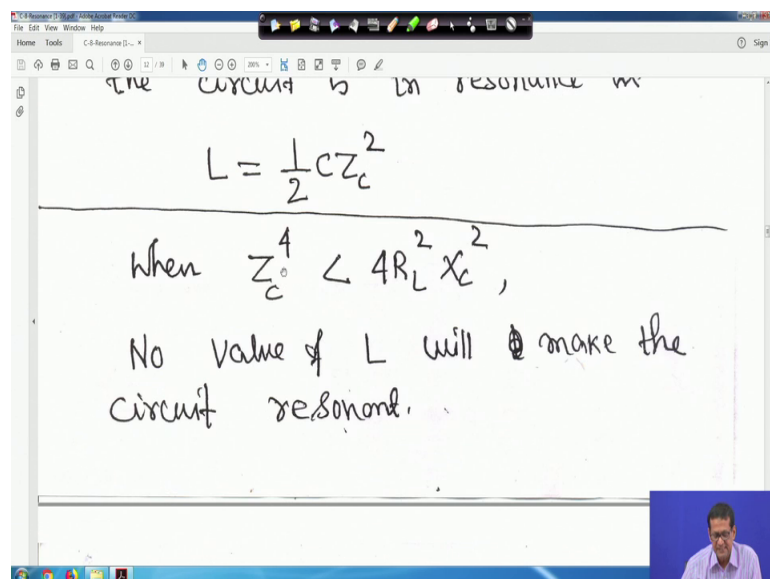 C-8-Resonance [1-39].pdf - Adobe Acrobat Reader DC
File Edit View Window Help
Home Tools C-8-Resonance [1-... × Sign
12 / 39 200%
the circuit is in resonance
L = 1/2 C Z_c^2
When Z_c^4 < 4R_L^2 X_c^2 ,
No value of L will make the
circuit resonont.